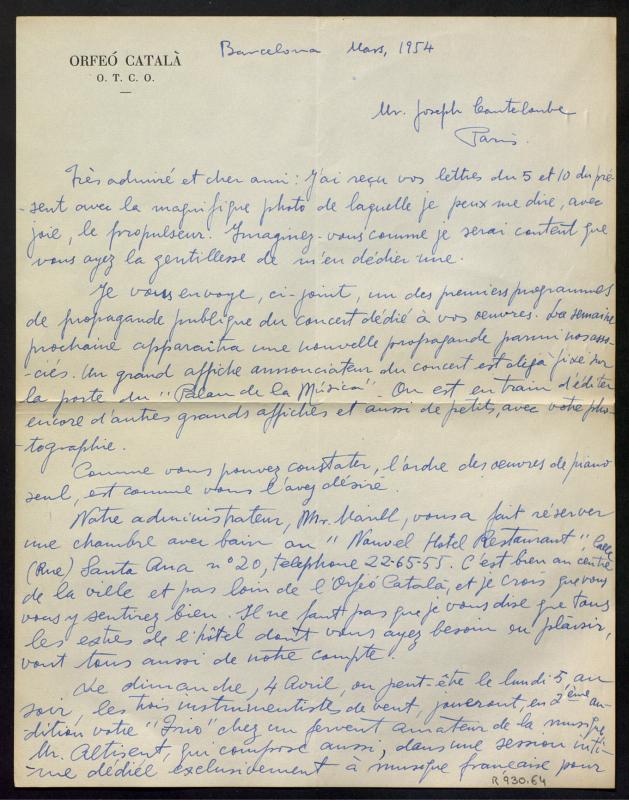 ORFEÓ CATALÀ
O. T. C. O.
Barcelona Mars, 1954
Mr. Joseph Canteloube
Paris.
Très admiré et cher ami: J'ai reçu vos lettres du 5 et 10 du pré-
-sent avec la magnifique photo de laquelle je peux me dire, avec
joie, le propulseur. Imaginez-vous comme je serai content que
vous ayez la gentillesse de m'en dédier une.
Je vous envoye, ci-joint, un des premiers programmes
de propagande publique du concert dédié à vos oeuvres. La semaine
prochaine apparaîtra une nouvelle propagande parmi nos asso-
-ciés. Un grand affiche annonciateur du concert est dejà fixé sur
la porte du "Palau de la Música". On est en train d'éditer
encore d'autres grands affiches et aussi de petits, avec votre pho-
-tographie.
Comme vous pouvez constater, l'ordre des oeuvres de piano
seul, est comme vous l'avez désiré.
Notre administrateur, Mr. Marll, vous a fait réserver
une chambre avec bain au "Nouvel Hotel Restaurant", Calle
(Rue) Santa Ana nº 20, telephone 22-65-55. C'est bien au centre
de la ville et pas loin de l'Orfeó Català, et je crois que vous
vous y sentirez bien. Il ne faut pas que je vous dise que tous
les extres de l'hôtel dont vous ayez besoin ou plaisir,
vont tous aussi de notre compte.
Le dimanche, 4 Avril, ou peut-être le lundi 5, au
soir, les trois instrumentistes de vent, joueront, en 2ème au-
dition votre "Trio" chez un fervent amateur de la musique,
Mr. Altisent, qui compose aussi, dans une session inti-
-me dédiée exclusivement à musique française pour
R 930.64